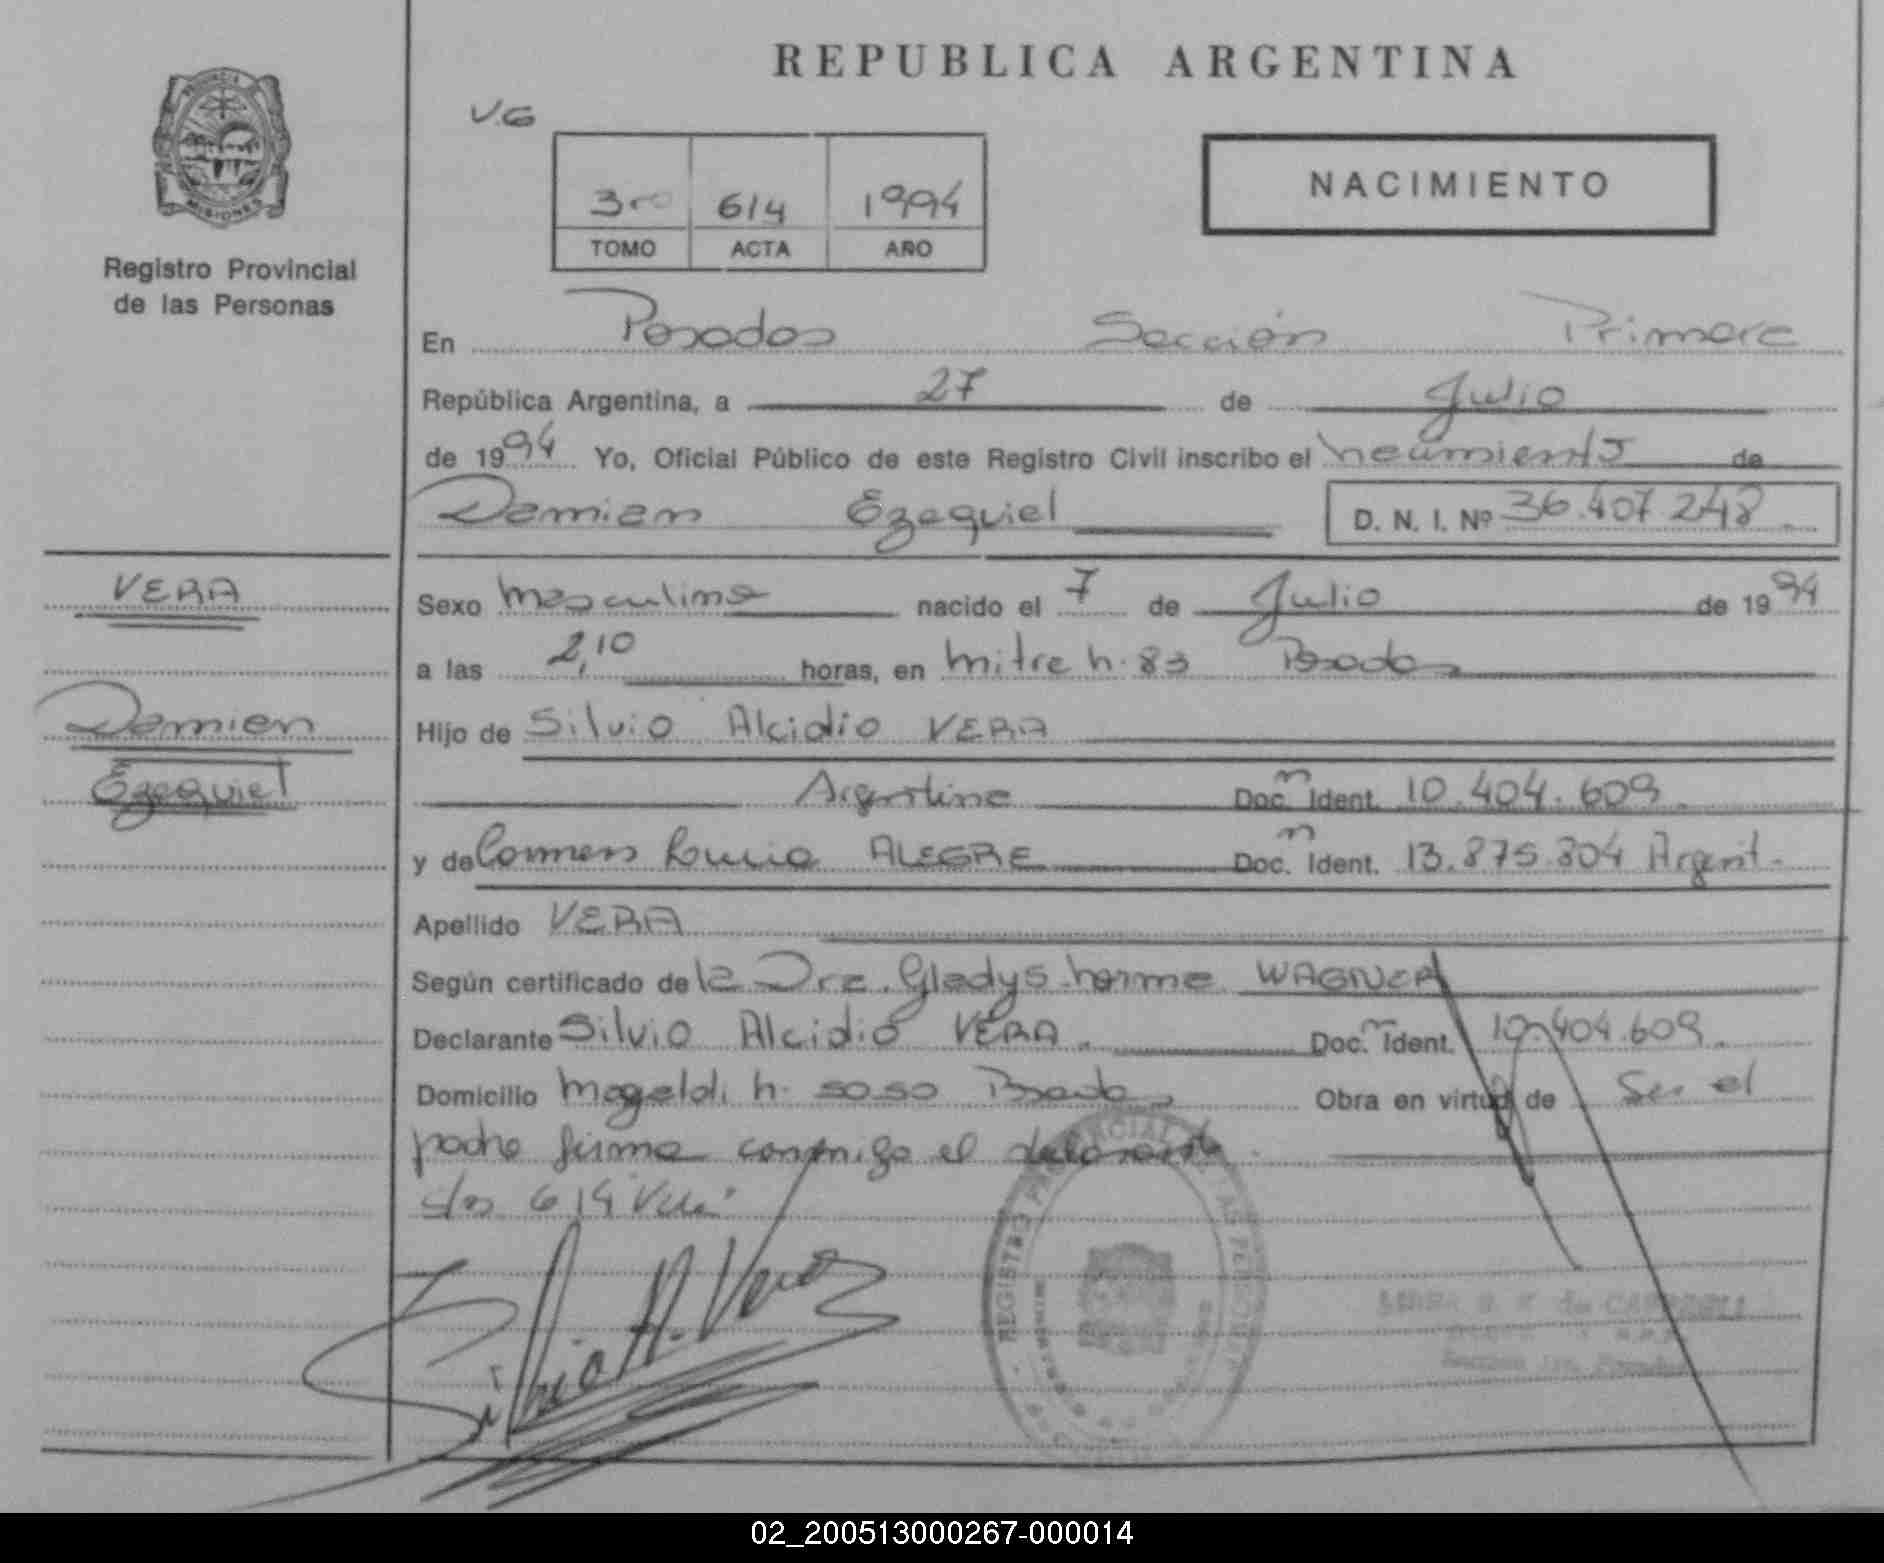 REPUBLICA ARGENTINA
V.G
3ro 614 1994
TOMO ACTA AÑO
NACIMIENTO
PROVINCIA
MISIONES
Registro Provincial
de las Personas
En Posadas Sección Primera
República Argentina, a 27 de Julio
de 1994 Yo, Oficial Público de este Registro Civil inscribo el nacimiento de
Damian Ezequiel D. N. I. Nº 36.407.248
VERA
Damian
Ezequiel
Sexo masculino nacido el 7 de Julio de 1994
a las 2,10 horas, en mitre n. 83 Posadas
Hijo de Silvio Alcidio VERA
Argentino Doc. Ident. 10.404.609.
y de Carmen Lucia ALEGRE Doc. Ident. 13.875.804 Argent.
Apellido VERA
Según certificado de la Dra. Gladys WAGNER
Declarante Silvio Alcidio VERA. Doc. Ident. 10.404.609.
Domicilio Magaldi n. 5050 Posadas Obra en virtud de Ser el
padre firma conmigo el declarante.
614
Silvio A. Vera
REGISTRO PROVINCIAL DE LAS PERSONAS
02_200513000267-000014